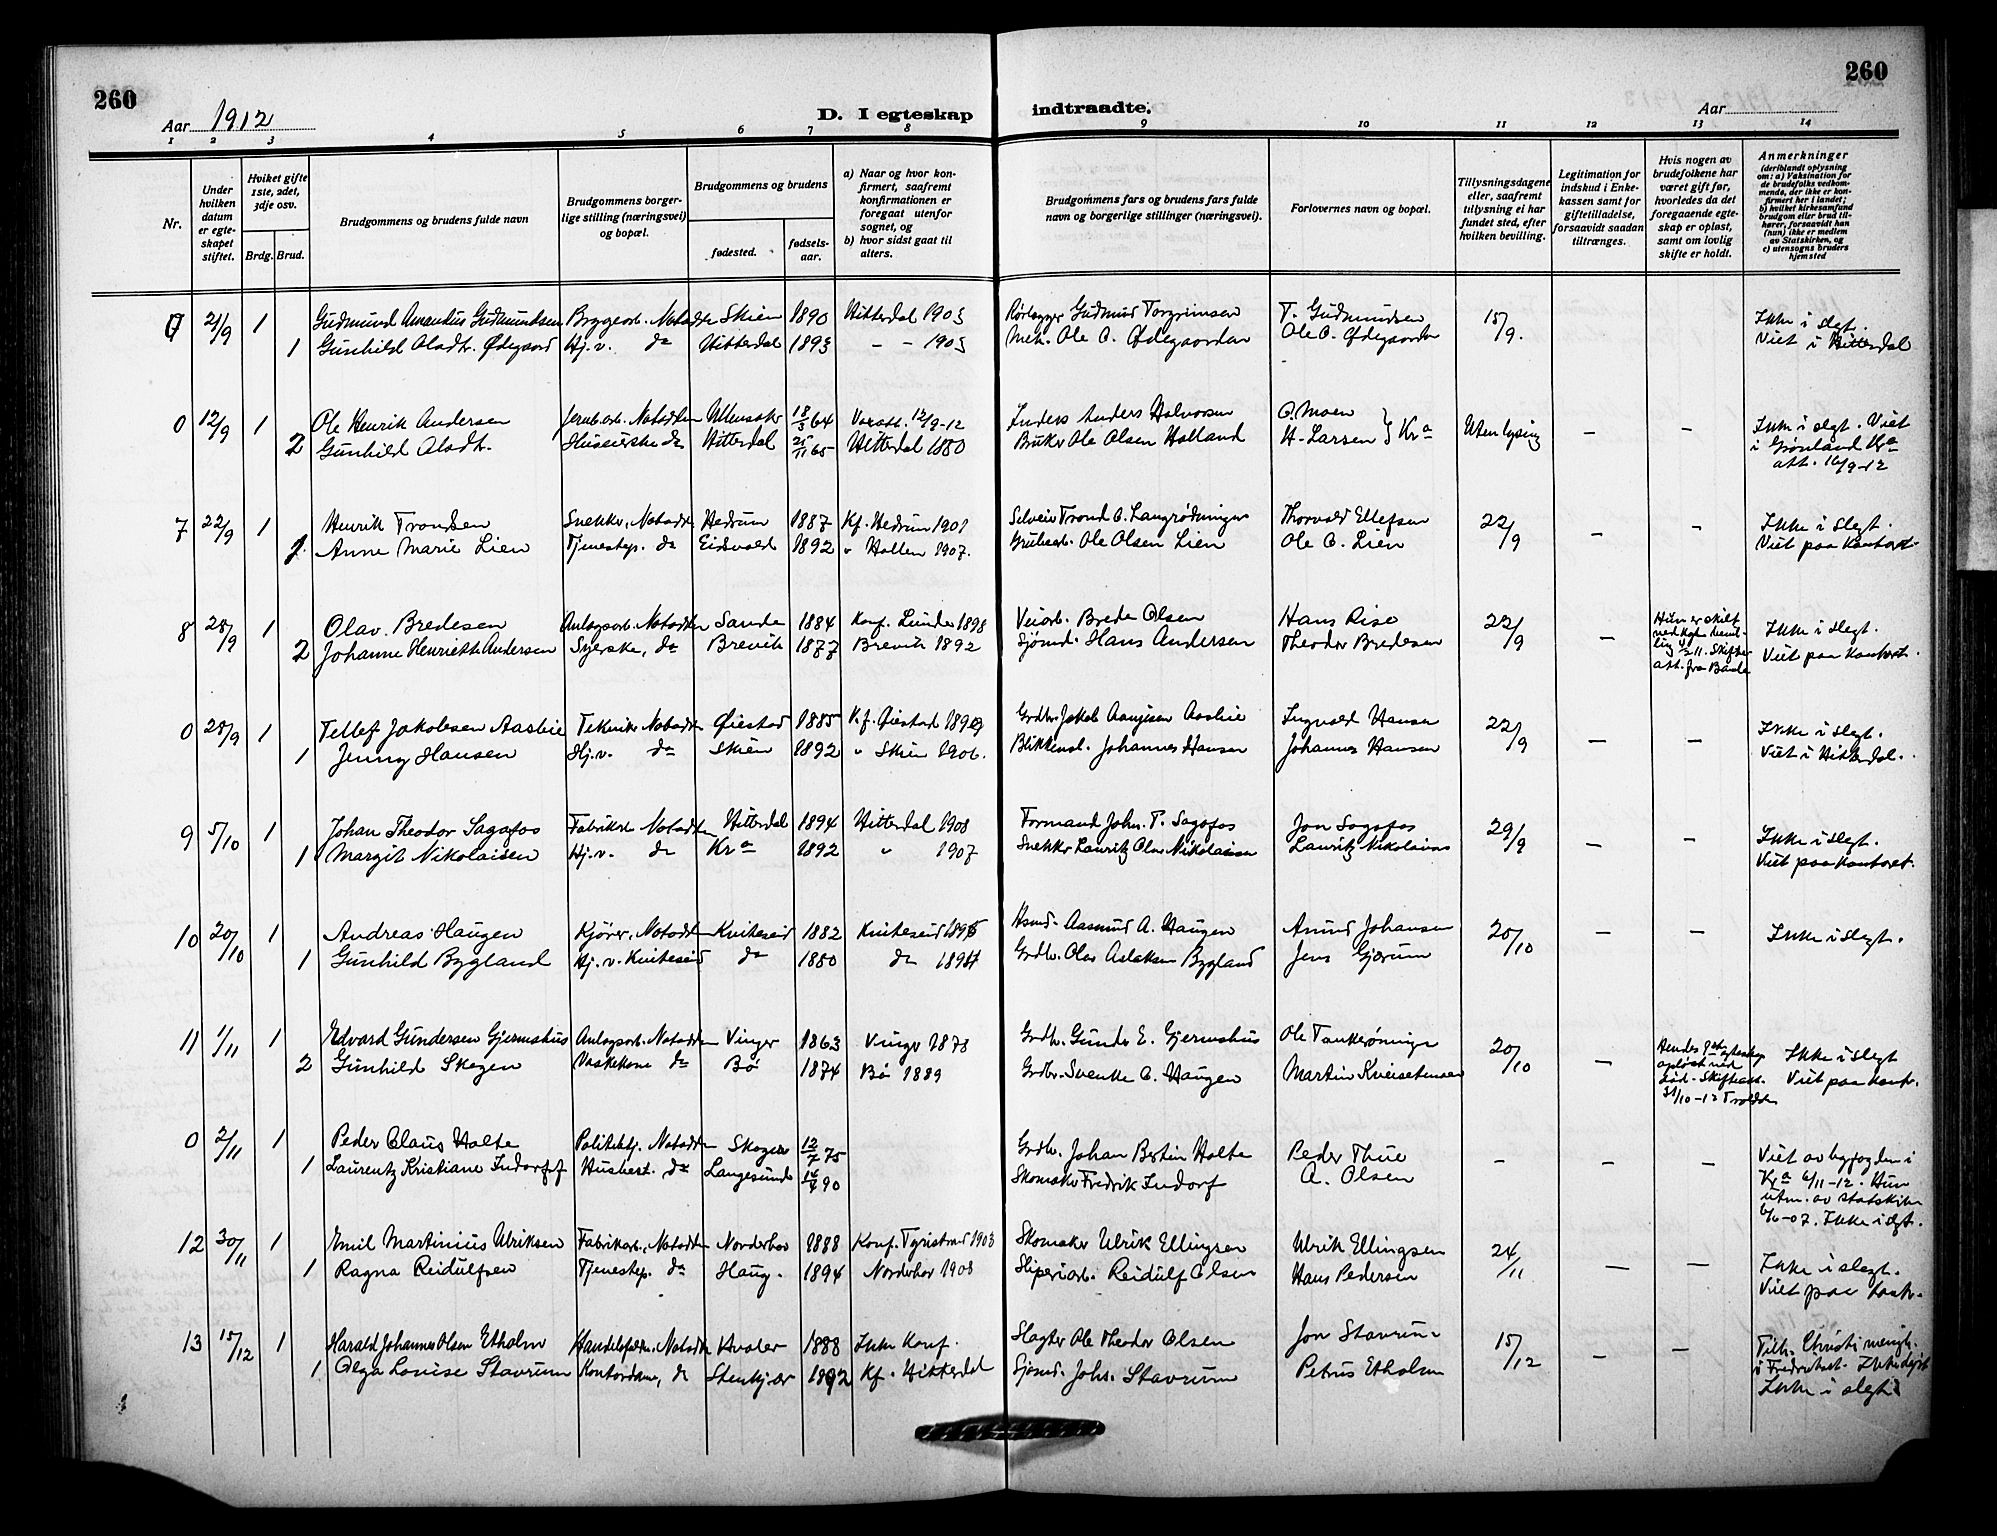 260
260
Aar 1912
D. I egteskap
indtraadte.
Aar
1 2 3 4 5 6 7 8 9 10 11 12 13 14
Nr.
Under hvilken datum er egteskapet stiftet.
Hvilket gifte 1ste, 2det, 3dje osv.
Brdg. Brud.
Brudgommens og brudens fulde navn
Brudgommens borgerlige stilling (næringsvei) og bopæl.
Brudgommens og brudens
fødested.
fødselsaar.
a) Naar og hvor konfirmert, saafremt konfirmationen er foregaat utenfor sognet, og
b) hvor sidst gaat til alters.
Brudgommens fars og brudens fars fulde navn og borgerlige stillinger (næringsvei).
Forlovernes navn og bopæl.
Tillysningsdagene eller, saafremt tillysning ei har fundet sted, efter hvilken bevilling.
Legitimation for indskud i Enkekassen samt for giftetilladelse, forsaavidt saadan tiltrænges.
Hvis nogen av brudefolkene har været gift før, hvorledes da det foregaaende egteskap er opløst, samt om lovlig skifte er holdt.
Anmerkninger (deriblandt oplysning om: a) Vaksination for de brudefolks vedkommende, der ikke er konfirmert her i landet; b) hvilket kirkesamfund brudgom eller brud tilhører, forsaavidt han (hun) ikke er medlem av Statskirken, og c) utensogns bruders hjemsted
0 21/9 1 Gudmund Amandus Gudmundsen Byggearb. Notodden Skien 1890 Hitterdal 1905 Rørlægger Gudmund Torgrimsen T. Gudmundsen 15/9. Ikke i slegt.
1 Gunhild Olsdtr. Ødegaard Hj.v. do Hitterdal 1893 - - 1905 Mek. Ole O. Ødegaarden Ole O. Ødegaarden Viet i Hitterdal
0 12/9 1 Ole Henrik Andersen Jernb.arb. Notodden Ullensaker 18/3 64 Varatt. 12/9-12 Inders Anders Halvorsen O. Moen Uten lysing - - Ikke i slegt. Viet
2 Gunhild Olsdtr. Husierske do Hitterdal 25/11 65 Hitterdal 1880 Bruker Ole Olsen Holland H. Larsen } Kra i Grønland Kra
att. 16/9-12
7 22/9 1 Henrik Trondsen Snekker, Notodden Hedrum 1887 Kf. Hedrum 1901 Selveier Trond O. Langrødningen Thorvald Ellefsen 22/9 - - Ikke i slegt.
1 Anne Marie Lien Tjenestep. do Eidsvold 1892 " Hollen 1907. Grubearb. Ole Olsen Lien Ole O. Lien Viet paa Kontoret
8 28/9 1 Olav Bredesen Anlægsarb. Notodden Sande 1884 Konf. Lunde 1898 Veiarb. Brede Olsen Hans Riso 22/9 - Hun er skilt Ikke i slegt.
2 Johanne Henriette Andersen Syerske, do Brevik 1877 Brevik 1892 Sjømd. Hans Andersen Theodor Bredesen Viet paa Kontoret.
att. fra Bamle
0 28/9 1 Tellef Jakobsen Aasbie Tekniker Notodden Øiestad 1885 Kf. Øiestad 1899 Grdbr. Jakob Aanjisen Aasbie Ingvald Hansen 22/9 - - Ikke i slegt.
1 Jenny Hansen Hj.v. do Skien 1892 " Skien 1906. Blikkensl. Johannes Hansen Johannes Hansen Viet i Hitterdal.
9 5/10 1 Johan Theodor Sagafos Fabrikarb. Notodden Hitterdal 1894 Hitterdal 1908 Formand Johan T. Sagafos Jon Sagafos 29/9 - - Ikke i slegt.
1 Margit Nikolaisen Hj.v. do Kra 1892 " 1907 Snekker Lauritz Olav Nikolaisen Lauritz Nikolaisen Viet paa Kontoret.
10 20/10 1 Andreas Haugen Kjører, Notodden Kviteseid 1882 Kviteseid 1896 Hsmd. Aasmund A. Haugen Anund Johansen 20/10 - - Ikke i slegt.
1 Gunhild Bygland Hj.v. Kviteseid do 1880 do 1894 Grdbr. Olav Aslaksen Bygland Jens Gjærum
11 1/11 1 Edvard Gundersen Gjermshus Anlægsarb. Notodden Vinger 1863 Vinger 1878 Grdbr. Gunder E. Gjermshus Ole Tankerøningen 20/10 - Hendes 1ste egteskap Ikke i slegt
2 Gunhild Skogen Vaskekone do Bø 1874 Bø 1889 Grdbr. Svenke O. Haugen Martin Kveisetensen opløst ved død. Skifteatt. Viet paa Kontr.
31/10-12
0 2/11 1 Peder Claus Holte Politibtj. Notodden Skoger 12/7 75 Grdbr. Johan Bertin Holte Peder Thue - - - Viet av byfogden i
1 Laurentz Kristiane Indorff Husbest. do Langesund 14/4 90 Skomaker Fredrik Indorf A. Olsen Kra 6/11-12. Hun
utm. av statskirken
6/6-07. Ikke i slgt.
12 30/11 1 Emil Martinius Ulriksen Fabrikarb., Notodden Norderhov 1888 Konf. Tyristrand 1903 Skomaker Ulrik Ellingsen Ulrik Ellingsen 24/11 - - Ikke i slegt.
1 Ragna Reidulfsen Tjenestep. do Haug. 1894 Norderhov 1908 Sliperiarb. Reidulf Olsen Hans Pedersen Viet paa Kontr.
13 15/12 1 Harald Johannes Olsen Etholm Handelsfuldm. Notodden Hvaler 1888 Ikke Konf. Slagter Ole Theodor Olsen Jon Stavrum 15/12 - - Tilh. Christi menigh.
1 Olga Louise Stavrum Kontordame, do Stenkjær 1892 Kf. Hitterdal Sjømd. Johs. Stavrum Petrus Etholm i Fredrikst. Ikke døpt
Ikke i slegt